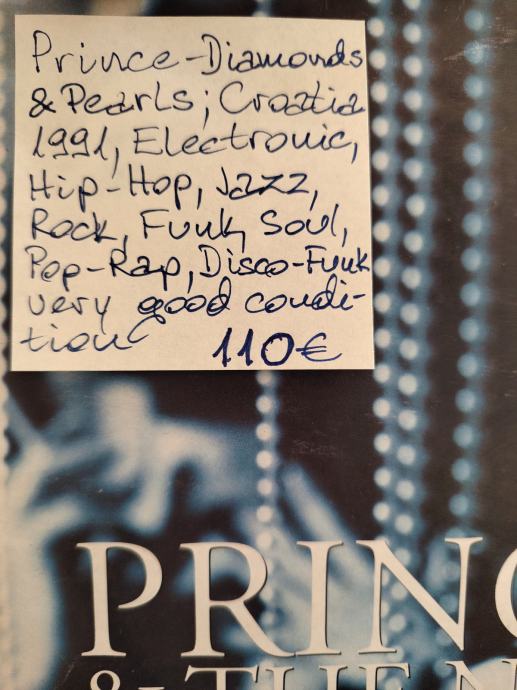 Prince-Diamonds
& Pearls; Croatia
1991, Electronic,
Hip-Hop, Jazz,
Rock, Funk, Soul,
Pop-Rap, Disco-Funk
very good condi-
tion 110€
PRINC
& THE N